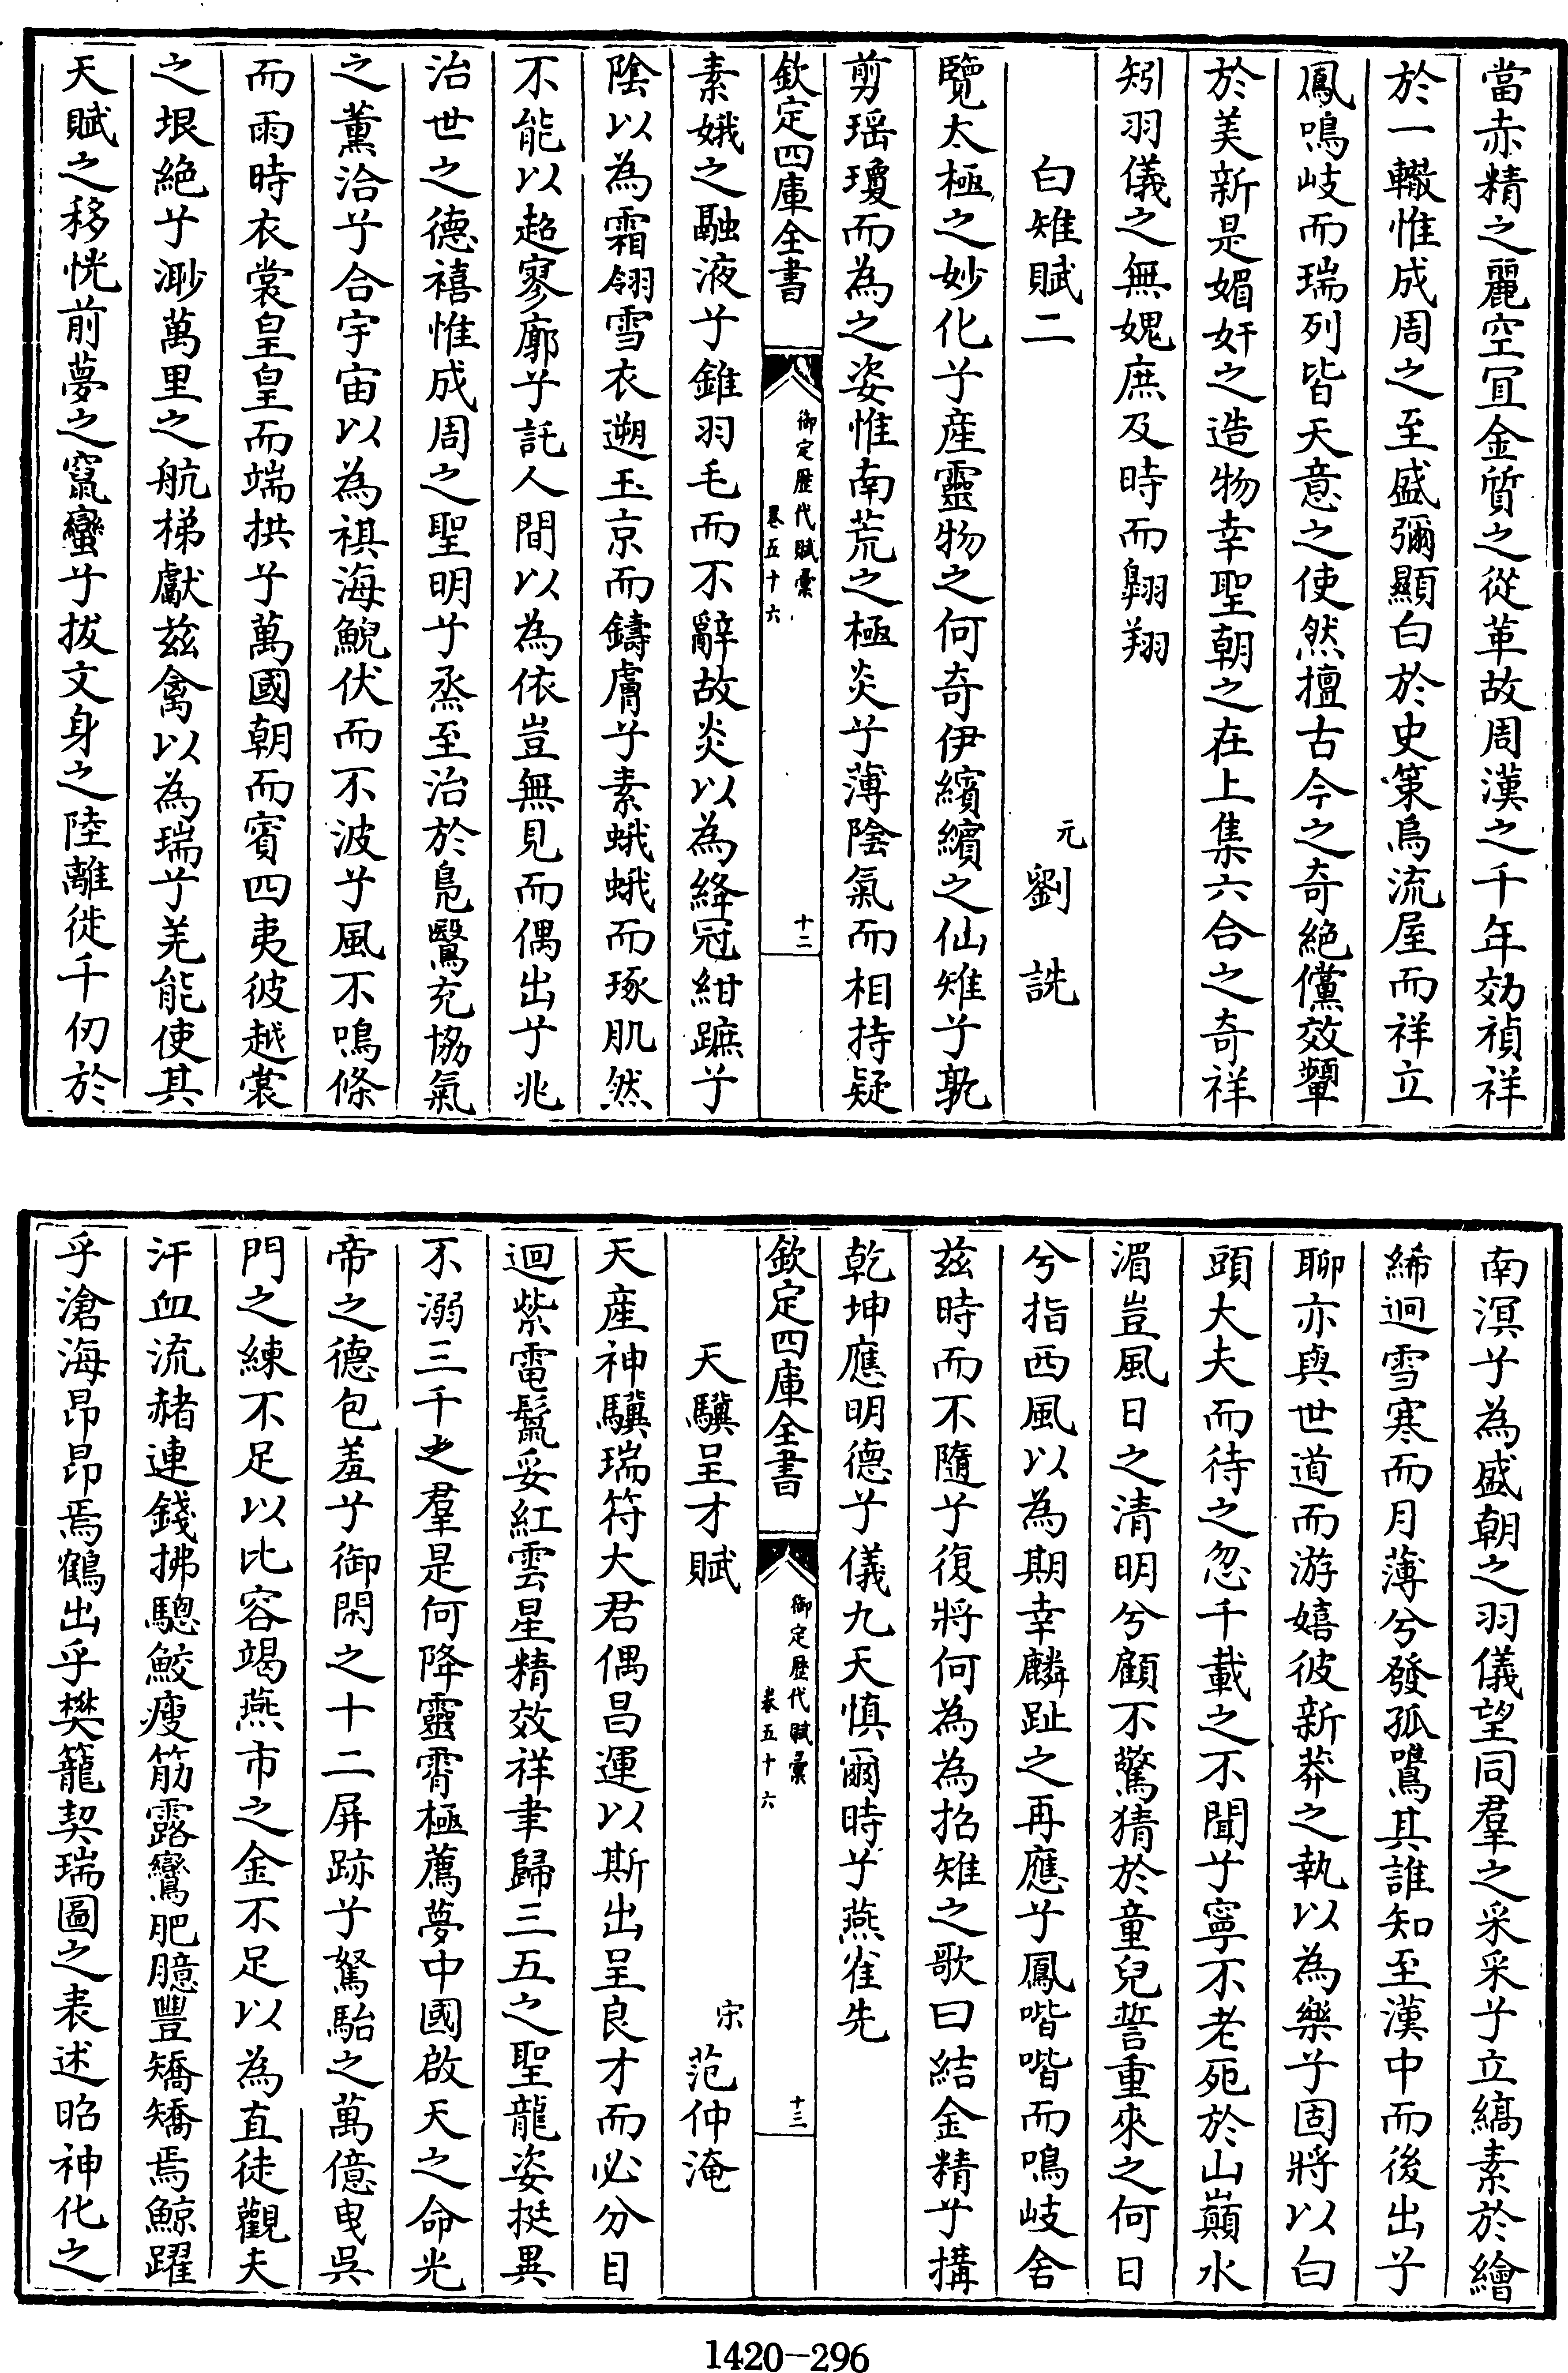 當赤精之麗空宜金質之從革故周漢之千年効禎祥
於一轍惟成周之至盛彌顯白於史策烏流屋而祥立
鳳鳴岐而瑞列皆天意之使然擅古今之奇絶儻效顰
於美新是媚奸之造物幸聖朝之在上集六合之奇祥
矧羽儀之無媿庶及時而翺翔
白雉賦二 元劉詵
覽太極之妙化兮産靈物之何奇伊繽繽之仙雉兮孰
剪瑶瓊而為之姿惟南荒之極炎兮薄隂氣而相持疑
欽定四庫全書 御定歴代賦彙 卷五十六 十二
素娥之融液兮錐羽毛而不辭故炎以為絳冠紺蹠兮
隂以為霜翎雪衣遡玉京而鑄膚兮素蛾蛾而琢肌然
不能以超寥廓兮託人間以為依豈無見而偶出兮兆
治世之德禧惟成周之聖明兮烝至治於鳬鷖充協氣
之薰洽兮合宇宙以為祺海鯢伏而不波兮風不鳴條
而雨時衣裳皇皇而端拱兮萬國朝而賓四夷彼越裳
之垠絶兮渺萬里之航梯獻兹禽以為瑞兮羌能使其
天賦之移恍前夢之窺蠻兮拔文身之陸離徙千仞於
南溟兮為盛朝之羽儀望同羣之采采兮立縞素於繪
絺迥雪寒而月薄兮發孤鷕其誰知至漢中而後出兮
聊亦與世道而游嬉彼新莽之執以為樂兮固將以白
頭大夫而待之忽千載之不聞兮寧不老死於山巔水
湄豈風日之清明兮顧不驚猜於童兒誓重來之何日
兮指西風以為期幸麟趾之再應兮鳳喈喈而鳴岐舍
兹時而不隨兮復將何為為招雉之歌曰結金精兮搆
乾坤應明德兮儀九天慎爾時兮燕雀先
欽定四庫全書 御定歴代賦彙 卷五十六 十三
天驥呈才賦 宋范仲淹
天産神驥瑞符大君偶昌運以斯出呈良才而必分目
迴紫電鬛妥紅雲星精效祥聿歸三五之聖龍姿挺異
不溺三千之羣是何降靈霄極薦夢中國啟天之命光
帝之德包羞兮御閑之十二屏跡兮駑駘之萬億曳呉
門之練不足以比容竭燕市之金不足以為直徒觀夫
汗血流赭連錢拂驄鮫瘦筋露鸞肥臆豐矯矯焉鯨躍
乎滄海昂昂焉鶴出乎樊籠契瑞圖之表述昭神化之
1420-296